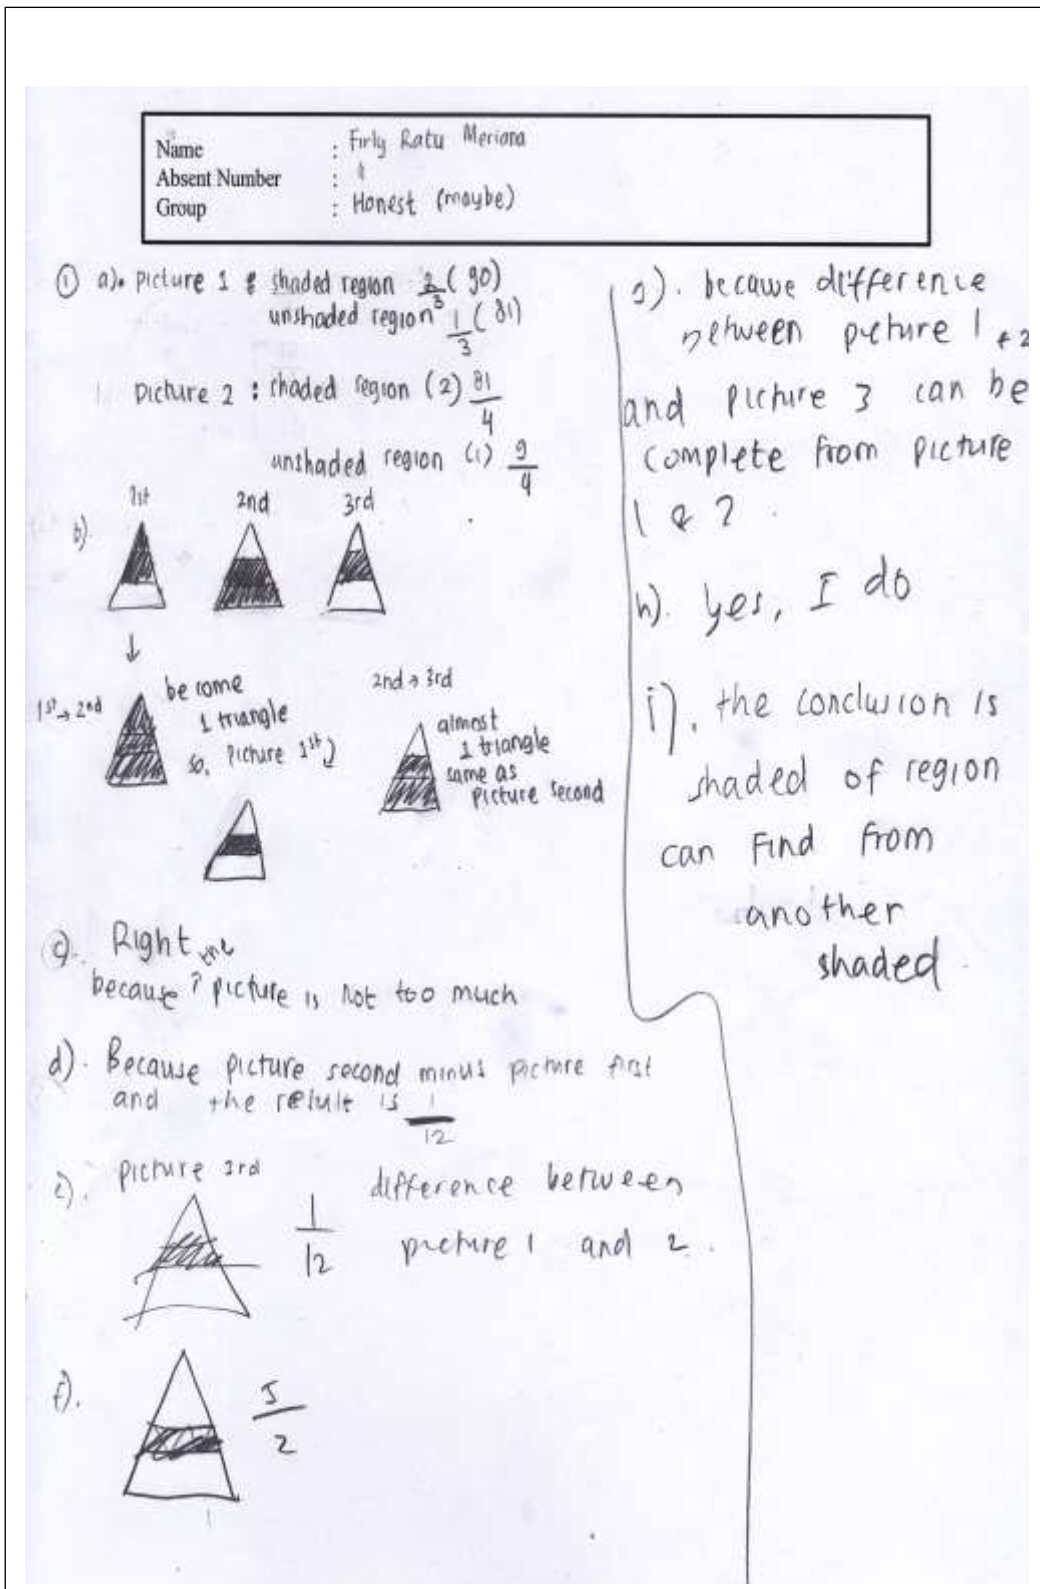 Name : Firly Ratu Meriana
Absent Number :
Group : Honest (maybe)
① a). Picture 1 : shaded region 2/3 (90)
unshaded region 1/3 (81)
Picture 2 : shaded region (2) 81/4
unshaded region (1) 9/4
b). 1st 2nd 3rd
1st → 2nd
become
1 triangle
so, Picture 1st
2nd → 3rd
almost
1 triangle
same as
picture second
c). Right
because the picture is not too much
d). Because picture second minus picture first
and the result is 1/12
e). picture 3rd
1/12 difference between
picture 1 and 2.
f). 5/2
g). because difference
between picture 1 & 2
and picture 3 can be
complete from picture
1 & 2.
h). yes, I do
i). the conclusion is
shaded of region
can find from
another
shaded.